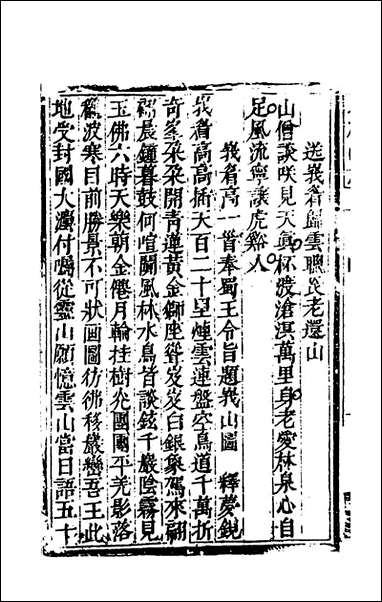 送峩眉歸雲聰長老還山
山僧談咲見天真杯渡滄溟萬里身老愛林泉心自
足風流寧讓虎谿人
峩眉高一首奉蜀王令旨題峩山圖　釋夢銳
峩眉高高插天百二十里煙雲連盤空鳥道千萬折
奇峯朶朶開青蓮黃金獅座耸岌岌白銀象駕來翩
翩晨鍾暮鼓何喧闐風林水鳥皆談鉉千巖陰霧見
玉佛六時天樂朝金僊月輪挂樹光團團平羌影落
波寒目前勝景不可狀画圖彷彿移巖巒吾王此
地受封國人瀆付囑從靈山願憶雲山當日語五十